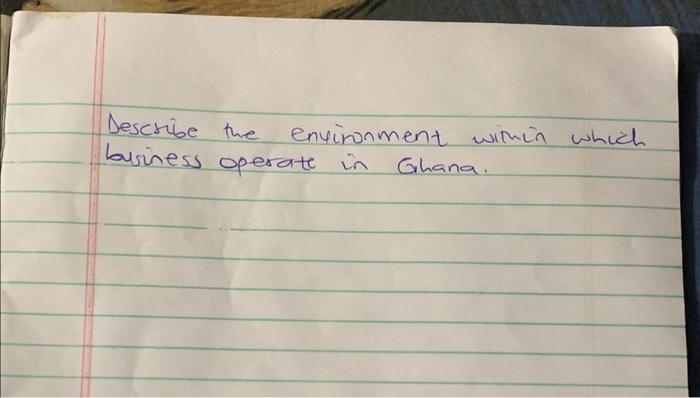 Describe the environment within which
business operate in Ghana.